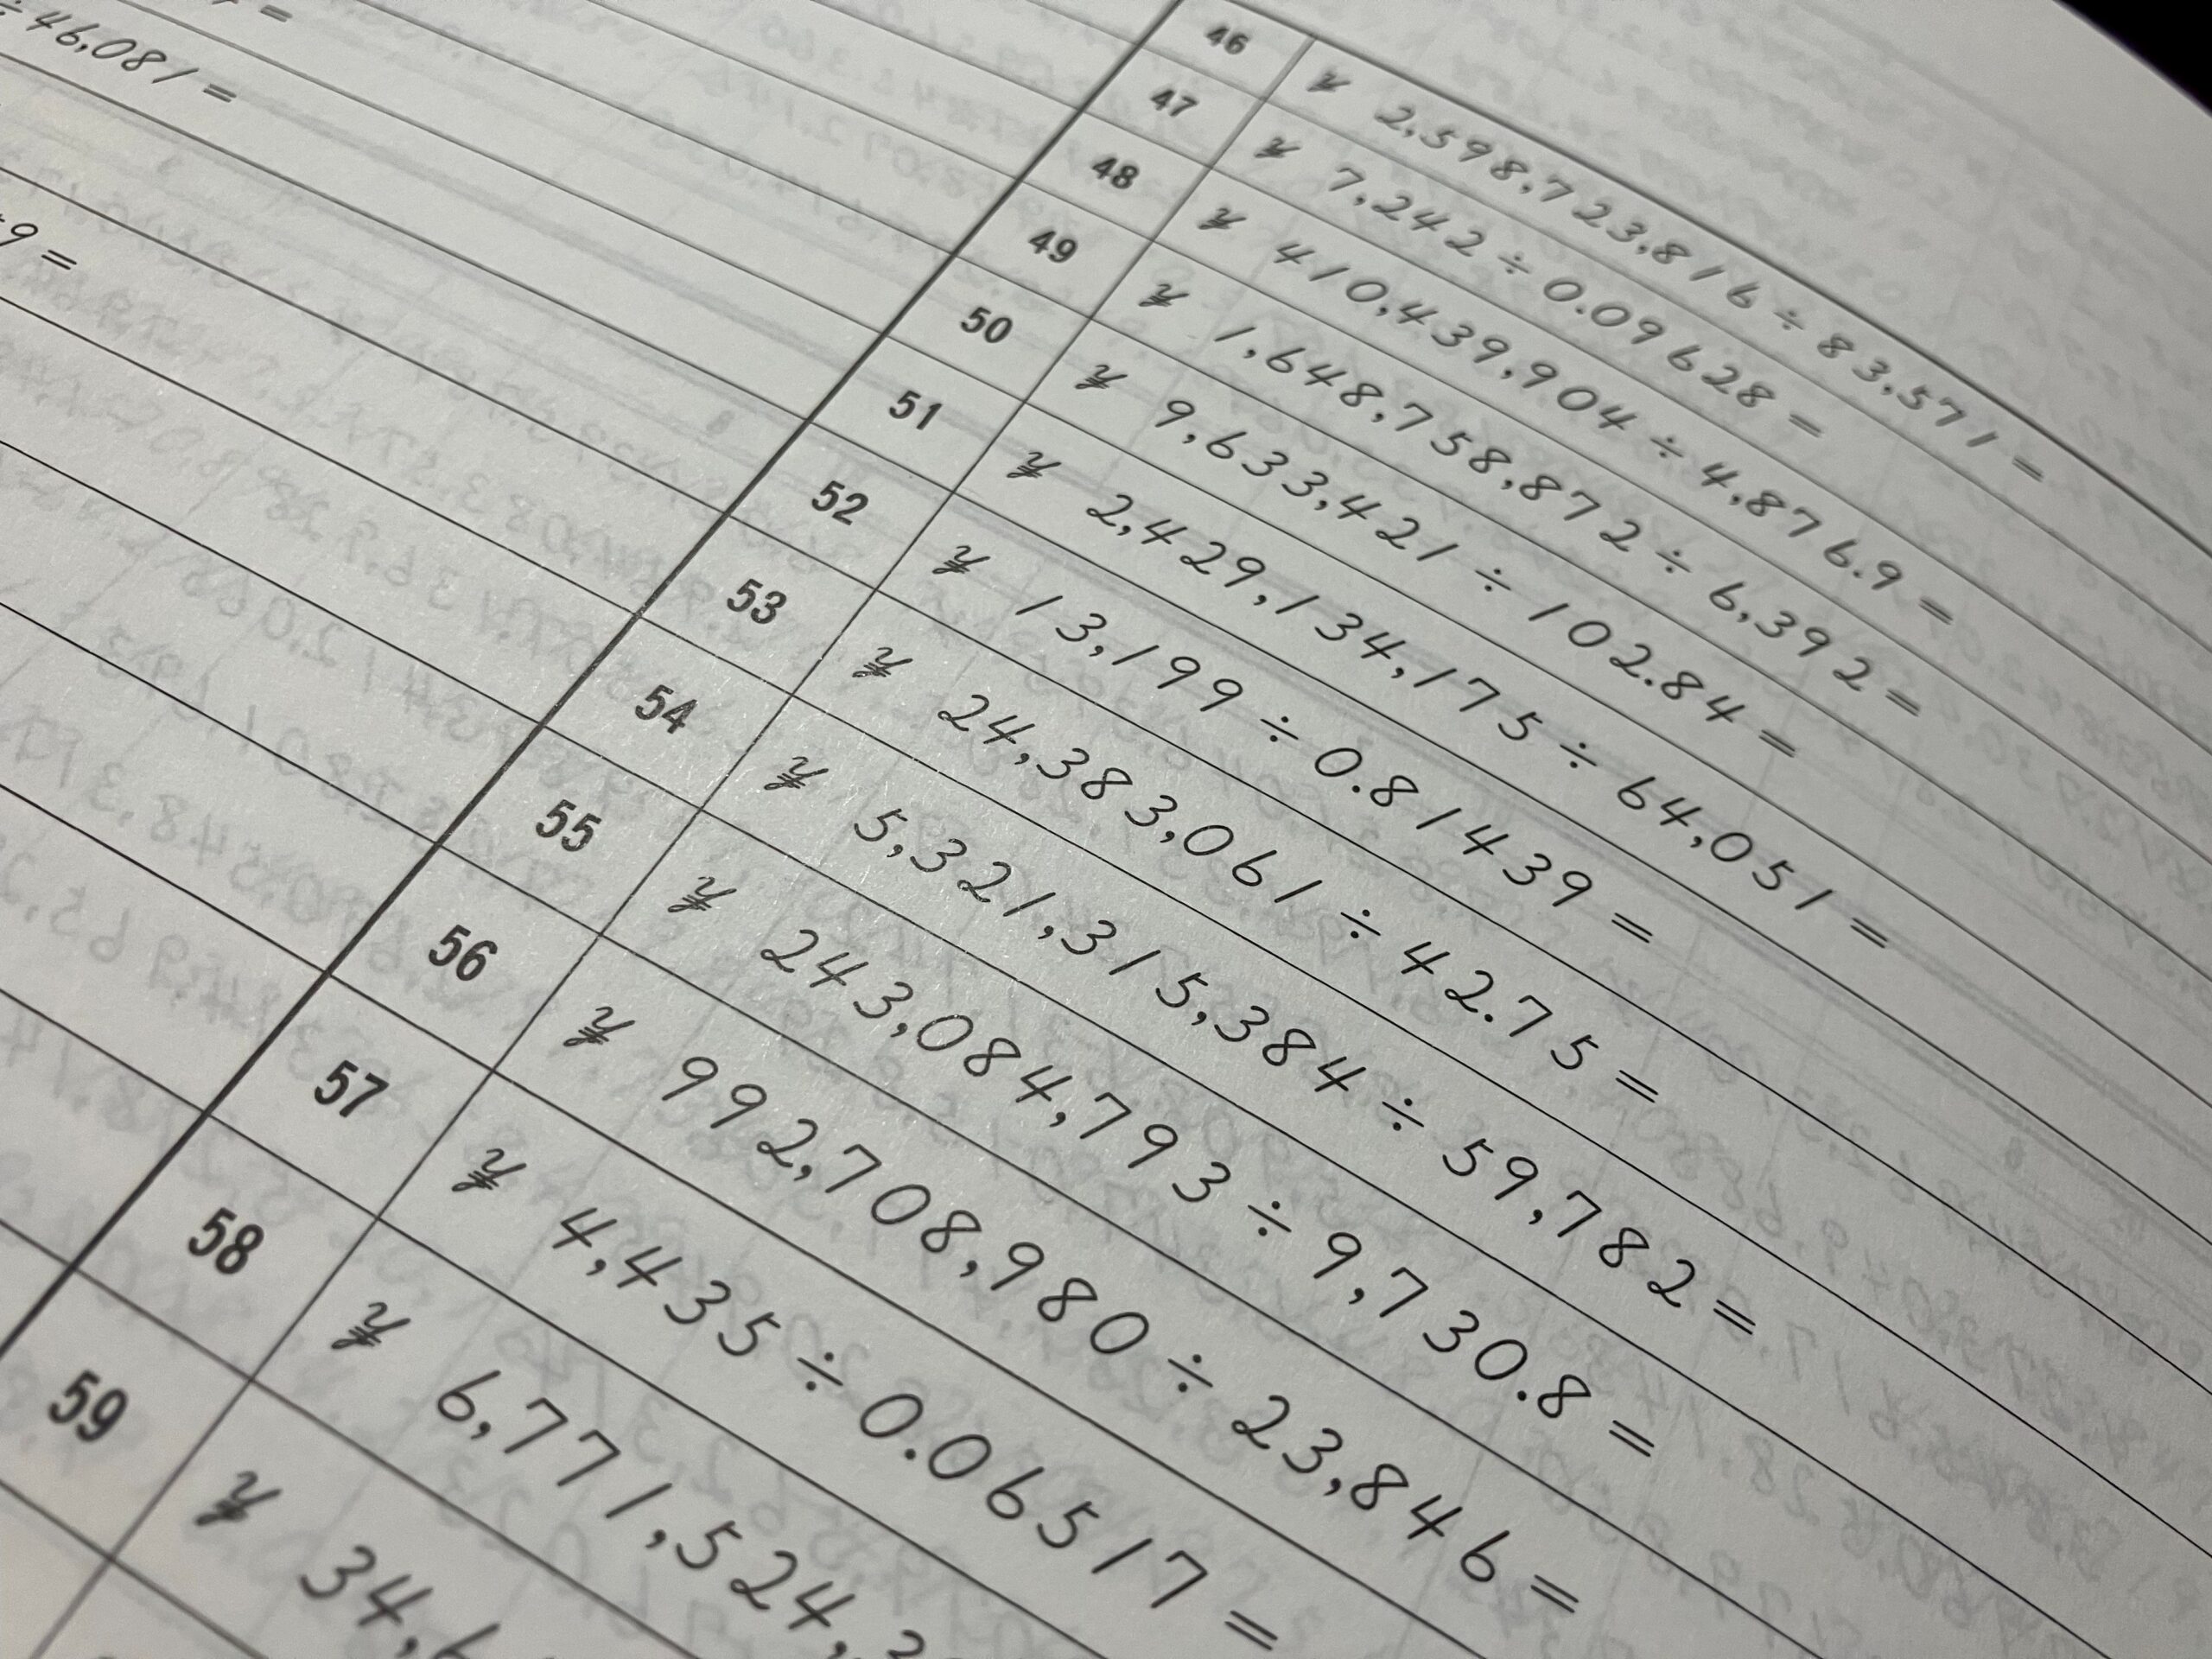 ÷46,081=
9=
46 ¥ 2,598,723,816÷83,571=
47 ¥ 7,242÷0.09628=
48 ¥ 410,439,904÷4,876.9=
49 ¥ 1,648,758,872÷6,392=
50 ¥ 9,633,421÷102.84=
51 ¥ 2,429,134,175÷64,051=
52 ¥ 13,199÷0.81439=
53 ¥ 24,383,061÷42.75=
54 ¥ 5,321,315,384÷59,782=
55 ¥ 243,084,793÷9,730.8=
56 ¥ 992,708,980÷23,846=
57 ¥ 4,435÷0.06517=
58 ¥ 6,771,524,
59 ¥ 34,